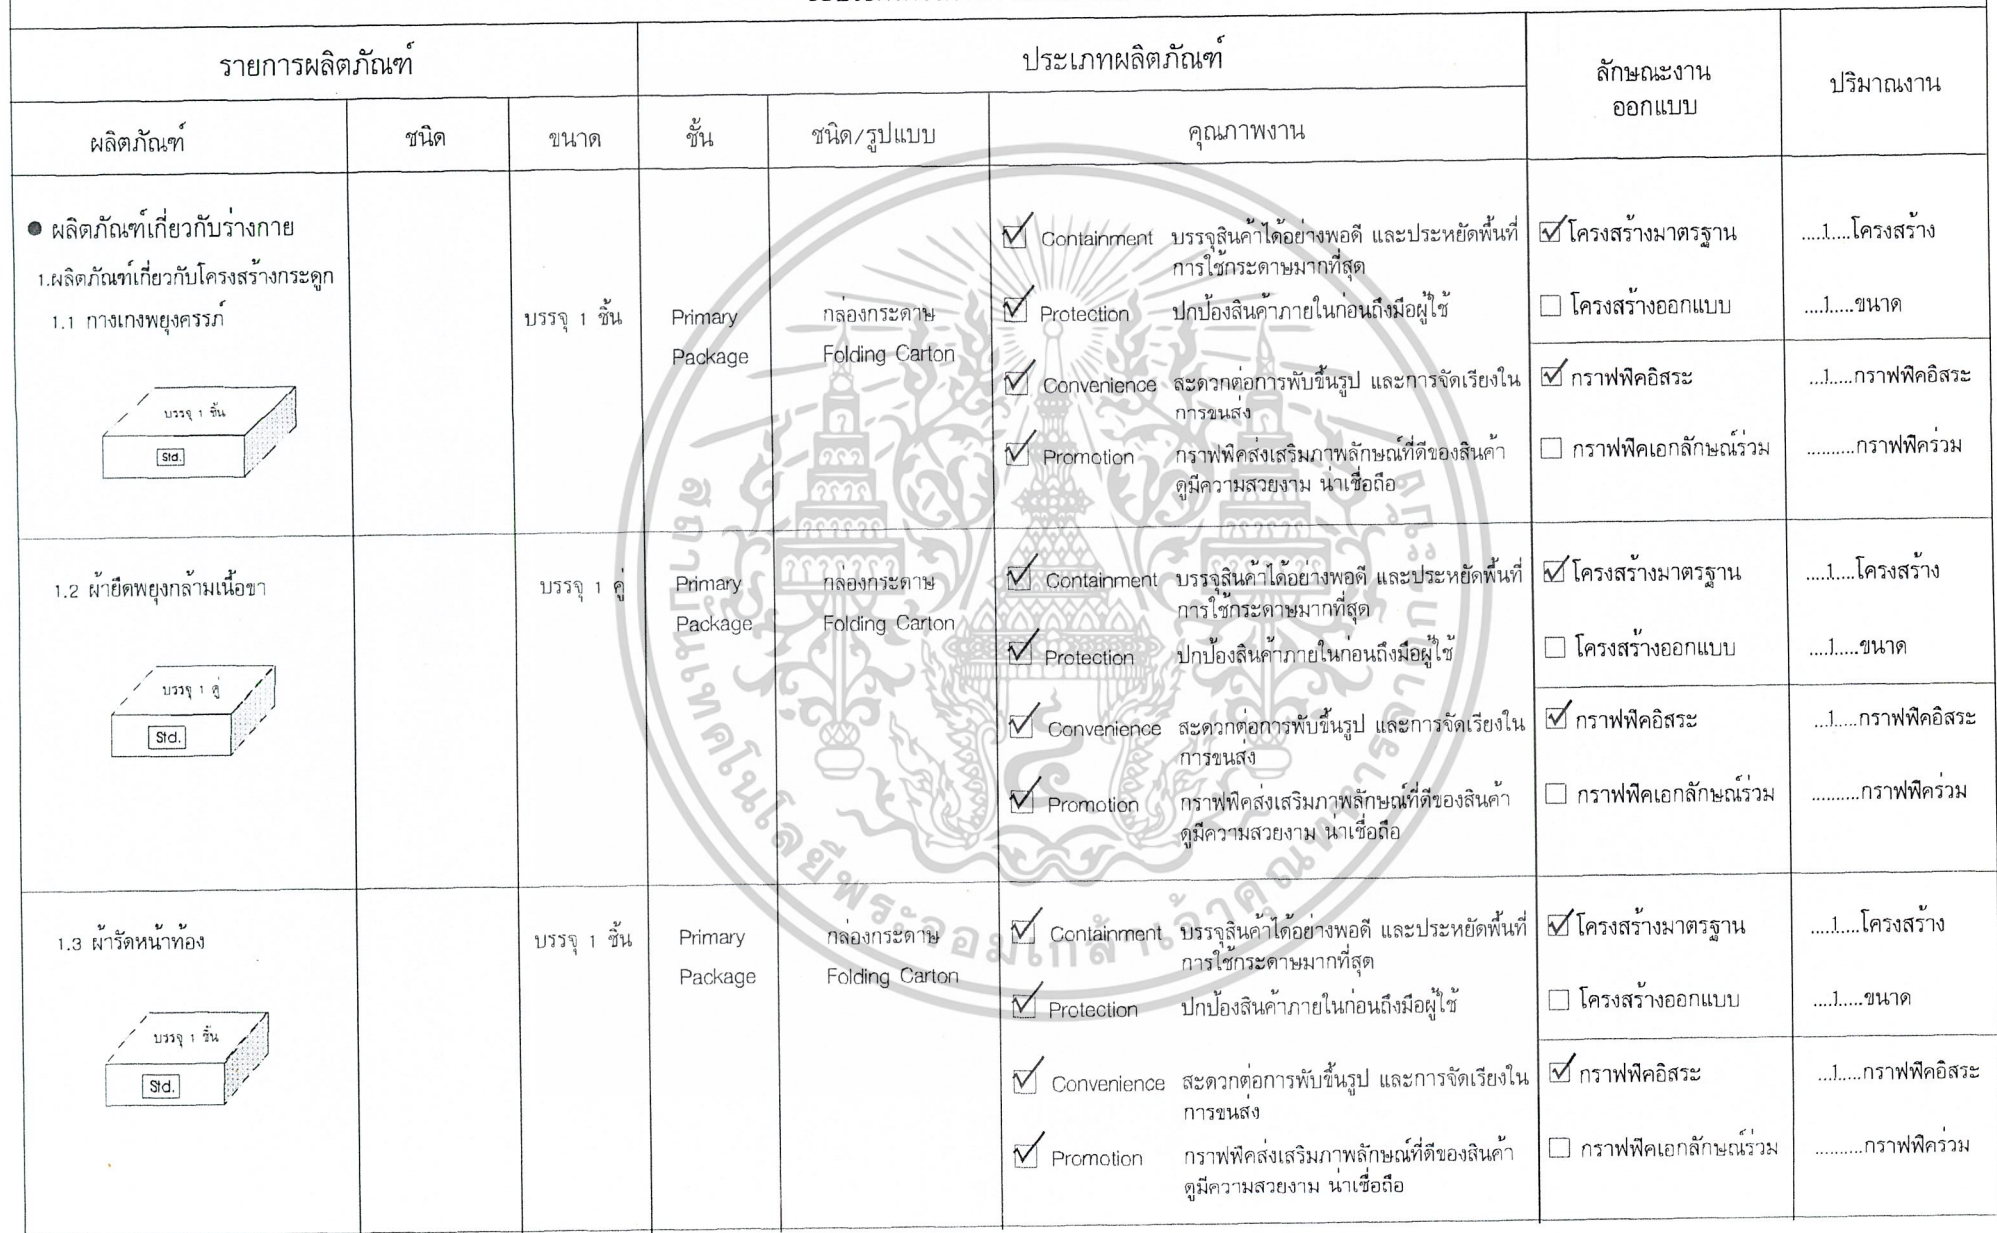 รายการผลิตภัณฑ์
ประเภทผลิตภัณฑ์
ลักษณะงาน
ออกแบบ
ปริมาณงาน
ผลิตภัณฑ์
ชนิด
ขนาด
ชั้น
ชนิด/รูปแบบ
คุณภาพงาน
● ผลิตภัณฑ์เกี่ยวกับร่างกาย
1.ผลิตภัณฑ์เกี่ยวกับโครงสร้างกระดูก
1.1 กางเกงพยุงครรภ์
บรรจุ 1 ชิ้น
Std.
บรรจุ 1 ชิ้น
Primary
Package
กล่องกระดาษ
Folding Carton
☑ Containment บรรจุสินค้าได้อย่างพอดี และประหยัดพื้นที่
การใช้กระดาษมากที่สุด
☑ Protection ปกป้องสินค้าภายในก่อนถึงมือผู้ใช้
☑ Convenience สะดวกต่อการพับขึ้นรูป และการจัดเรียงใน
การขนส่ง
☑ Promotion กราฟฟิคส่งเสริมภาพลักษณ์ที่ดีของสินค้า
ดูมีความสวยงาม น่าเชื่อถือ
☑ โครงสร้างมาตรฐาน
☐ โครงสร้างออกแบบ
☑ กราฟฟิคอิสระ
☐ กราฟฟิคเอกลักษณ์ร่วม
.....1....โครงสร้าง
....1.....ขนาด
...1.....กราฟฟิคอิสระ
..........กราฟฟิคร่วม
1.2 ผ้ายืดพยุงกล้ามเนื้อขา
บรรจุ 1 คู่
Std.
บรรจุ 1 คู่
Primary
Package
กล่องกระดาษ
Folding Carton
☑ Containment บรรจุสินค้าได้อย่างพอดี และประหยัดพื้นที่
การใช้กระดาษมากที่สุด
☑ Protection ปกป้องสินค้าภายในก่อนถึงมือผู้ใช้
☑ Convenience สะดวกต่อการพับขึ้นรูป และการจัดเรียงใน
การขนส่ง
☑ Promotion กราฟฟิคส่งเสริมภาพลักษณ์ที่ดีของสินค้า
ดูมีความสวยงาม น่าเชื่อถือ
☑ โครงสร้างมาตรฐาน
☐ โครงสร้างออกแบบ
☑ กราฟฟิคอิสระ
☐ กราฟฟิคเอกลักษณ์ร่วม
.....1....โครงสร้าง
....1.....ขนาด
...1.....กราฟฟิคอิสระ
..........กราฟฟิคร่วม
1.3 ผ้ารัดหน้าท้อง
บรรจุ 1 ชิ้น
Std.
บรรจุ 1 ชิ้น
Primary
Package
กล่องกระดาษ
Folding Carton
☑ Containment บรรจุสินค้าได้อย่างพอดี และประหยัดพื้นที่
การใช้กระดาษมากที่สุด
☑ Protection ปกป้องสินค้าภายในก่อนถึงมือผู้ใช้
☑ Convenience สะดวกต่อการพับขึ้นรูป และการจัดเรียงใน
การขนส่ง
☑ Promotion กราฟฟิคส่งเสริมภาพลักษณ์ที่ดีของสินค้า
ดูมีความสวยงาม น่าเชื่อถือ
☑ โครงสร้างมาตรฐาน
☐ โครงสร้างออกแบบ
☑ กราฟฟิคอิสระ
☐ กราฟฟิคเอกลักษณ์ร่วม
.....1....โครงสร้าง
....1.....ขนาด
...1.....กราฟฟิคอิสระ
..........กราฟฟิคร่วม
สถาบันเทคโนโลยีพระจอมเกล้าเจ้าคุณทหารลาดกระบัง